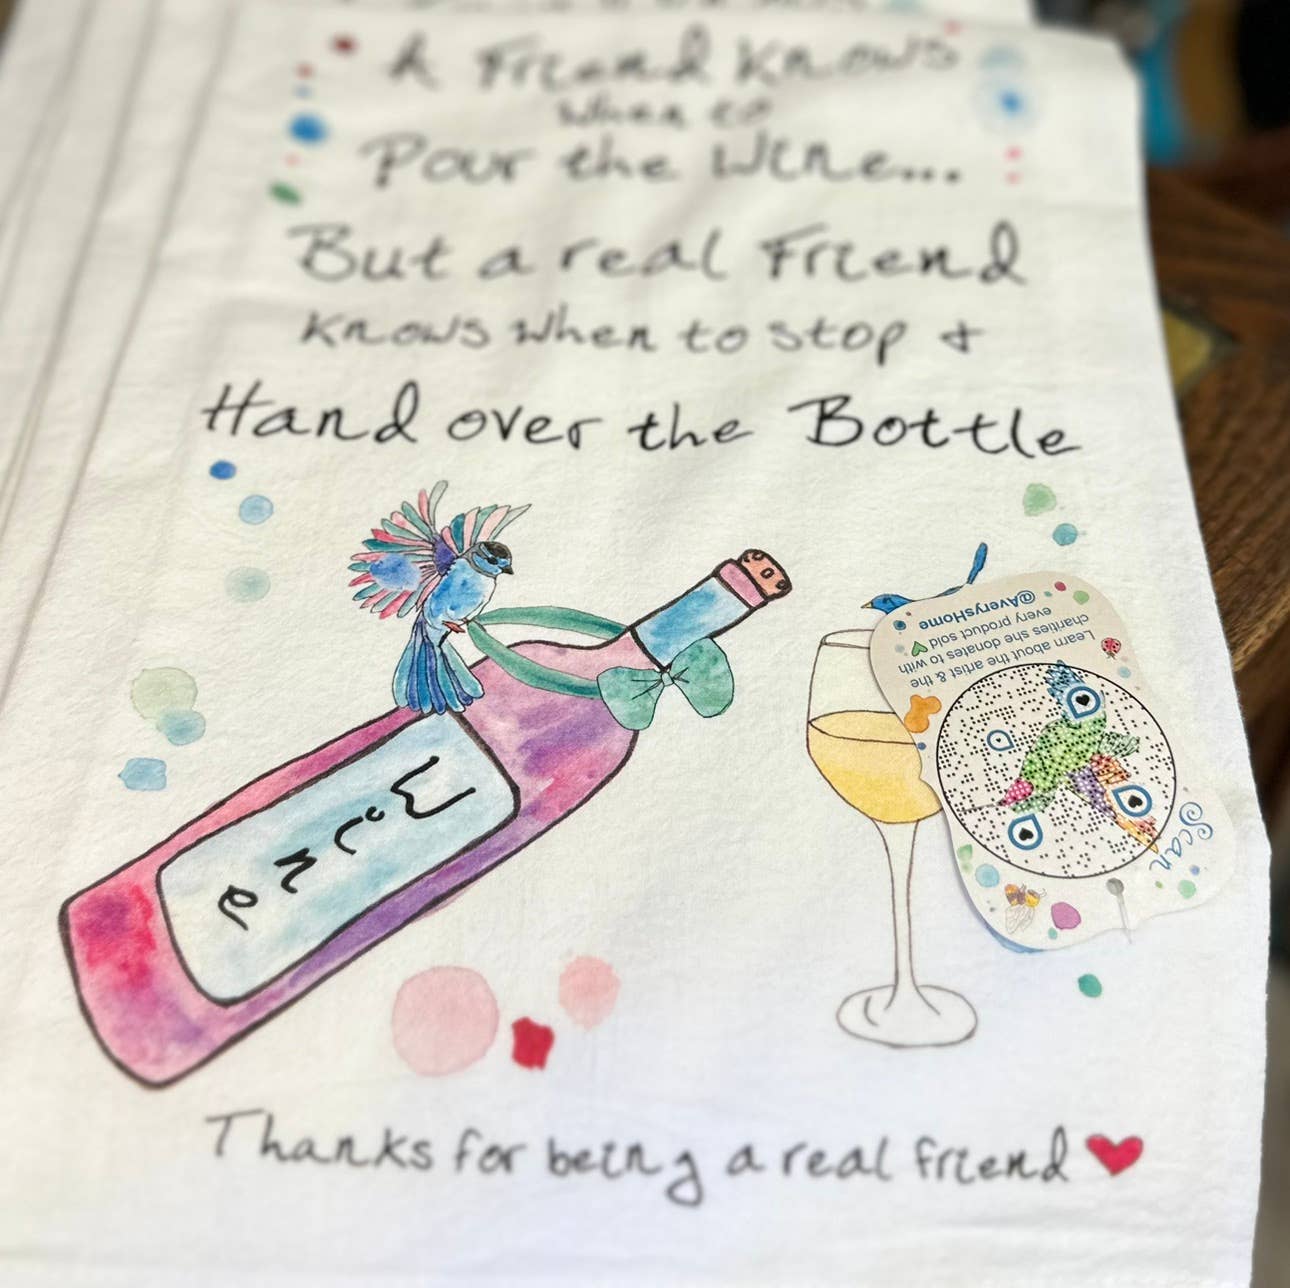 A Friend Knows
when to
Pour the Wine...
But a real Friend
Knows when to stop +
Hand over the Bottle
Wine
Learn about the artist & the
charities she donates to with
every product sold
@AverysHome
Scan
Thanks for being a real friend